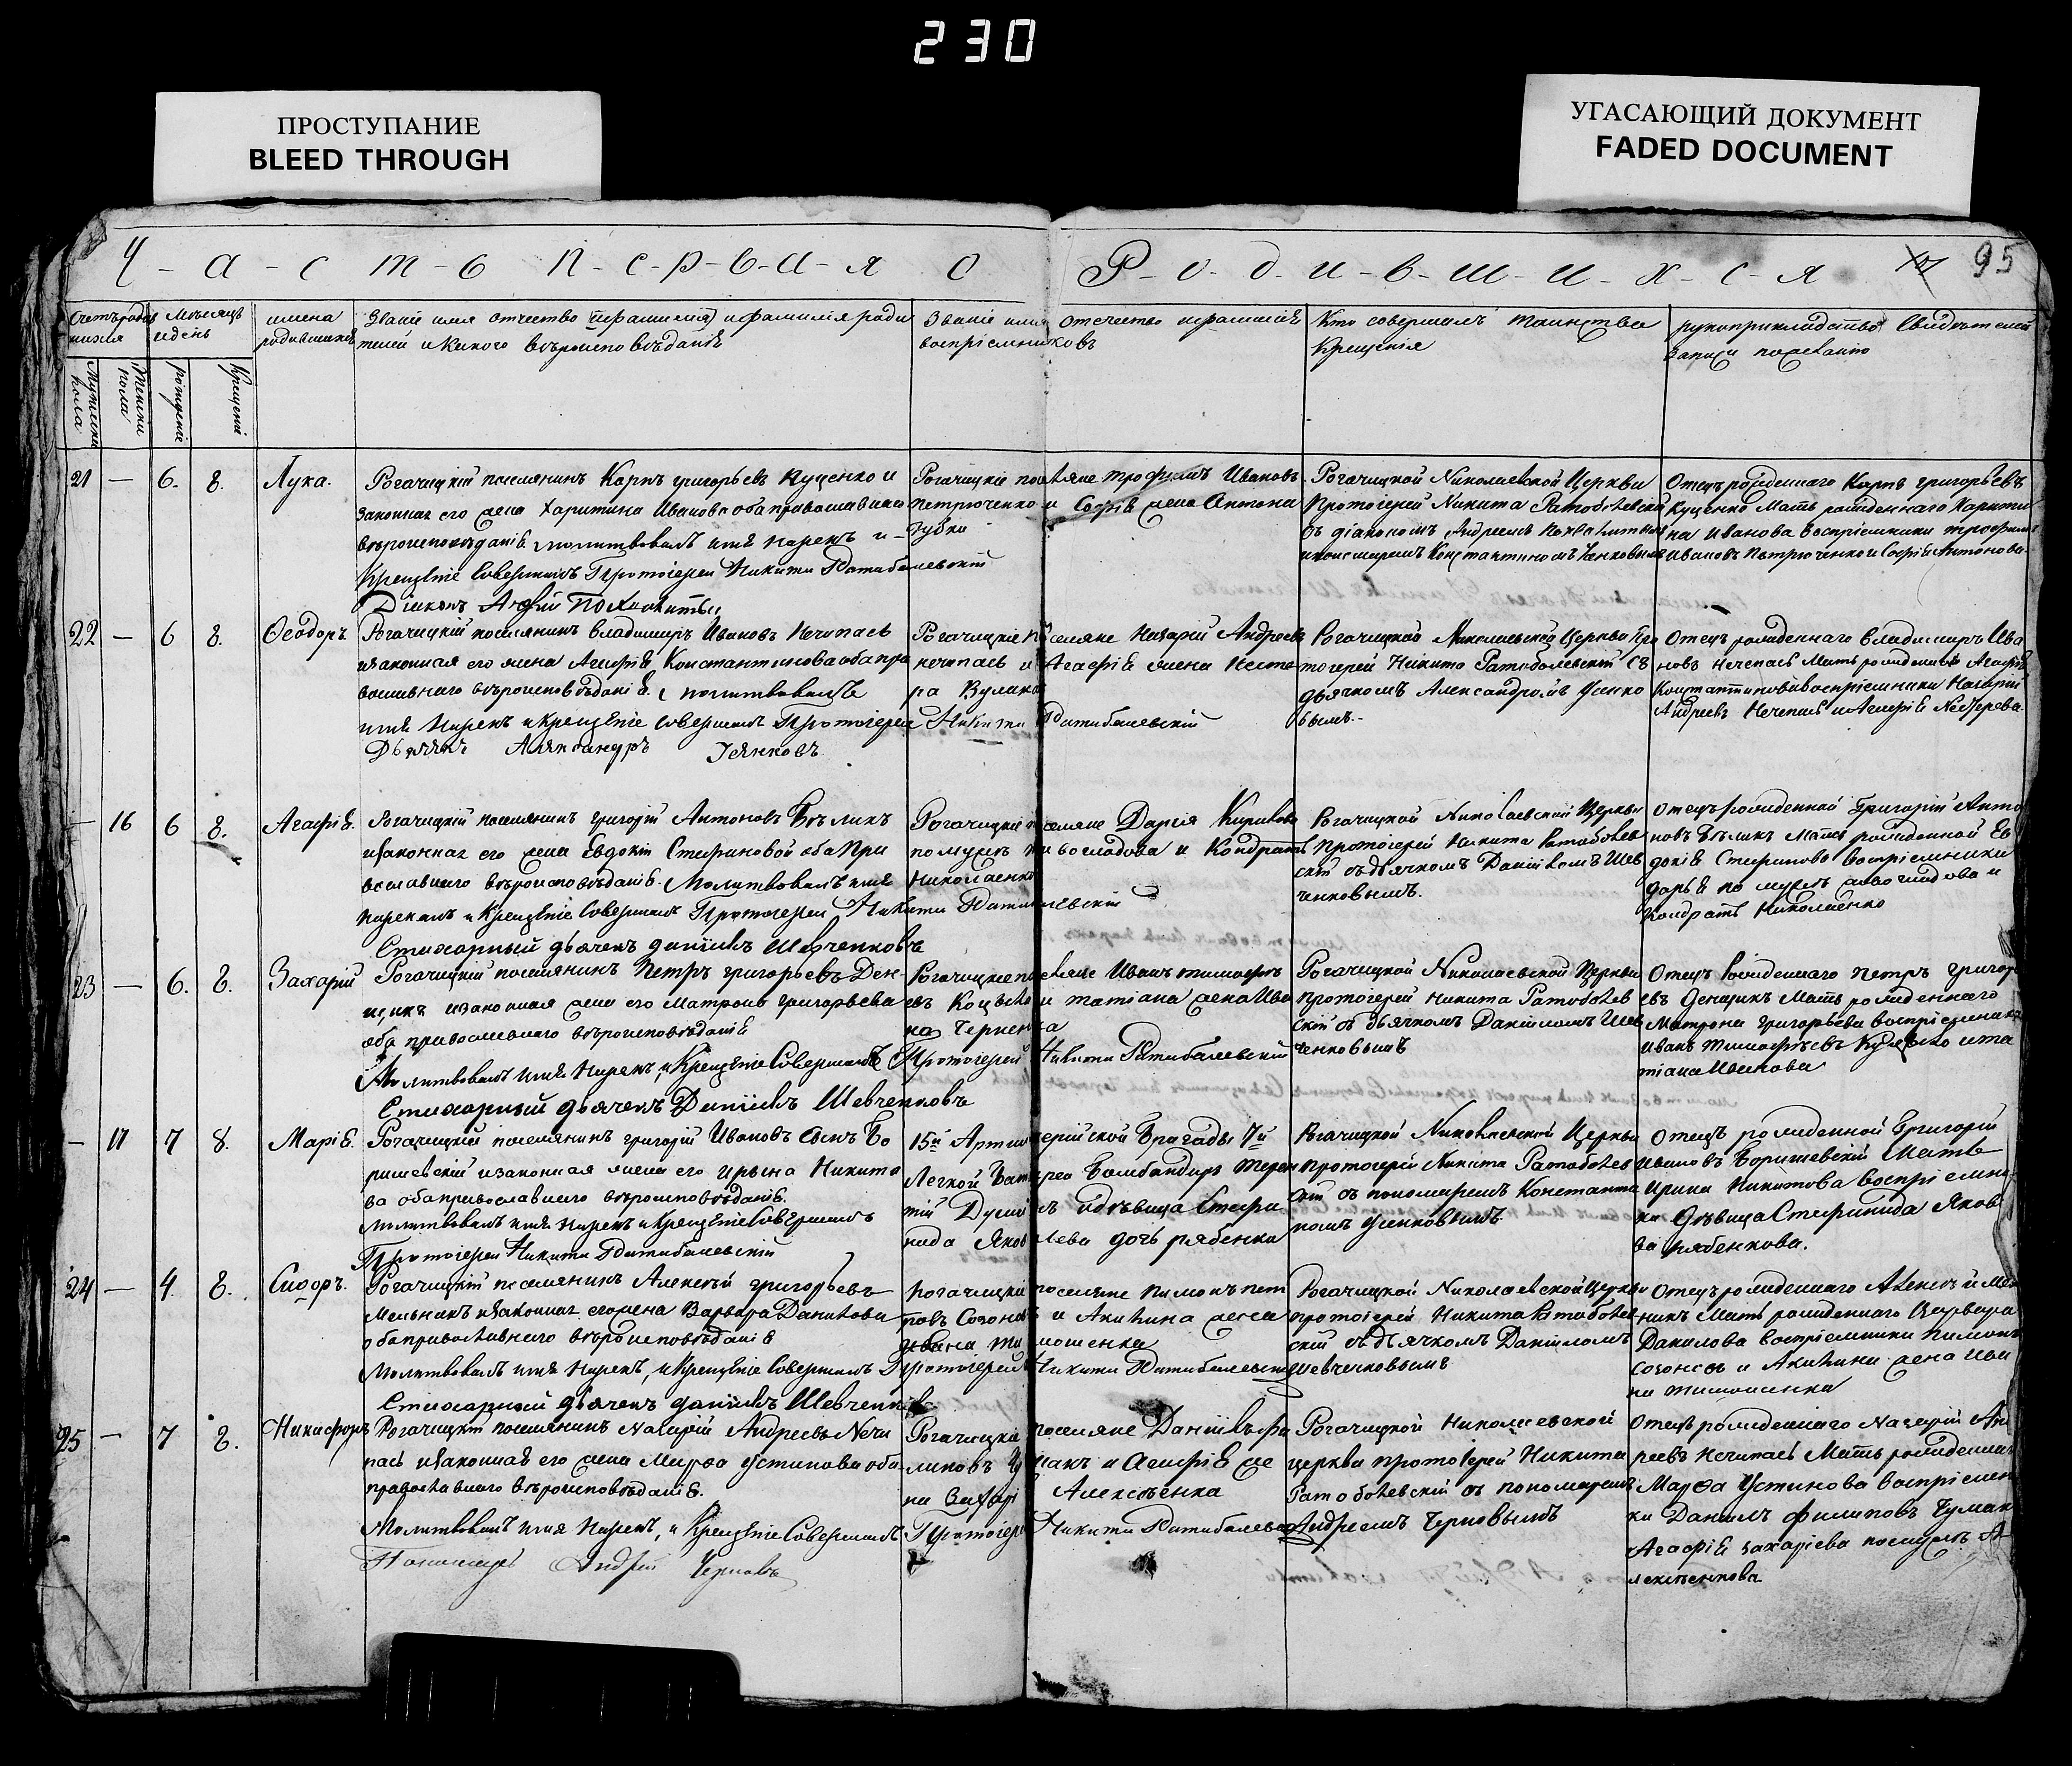 230
ПРОСТУПАНИЕ
BLEED THROUGH
УГАСАЮЩИЙ ДОКУМЕНТ
FADED DOCUMENT
Ч-а-с т-ь П-е-р-в-а-я о Р-о-д-и-в-ш-и-х-с-я
95
Мѣсяцъ
и день
имена
родившихся
Званіе имя отчество и фамилія роди
телей и какого вѣроисповѣданія
Званіе имя отчество и фамиліе
воспріемниковъ
Кто совершалъ таинство
Крещенія
рукоприкладство Свидѣтелей
записи по желанію
21 — 6. 8. Лука.
Рогачицкій поселянинъ Карпъ григорьевъ Куценко и
законная его жена Харитина Иванова оба православнаго
вѣроисповѣданіе. молитвовалъ имя нарекъ и
Крещеніе Совершалъ Протоіерей Никита Ратибалевскій
Діаконъ
Рогачицкіе поселяне трофимъ Ивановъ
Петрюченко и Софіе жена Антона
Зубка
Рогачицкой Николаевской Церкви
Протоіерей Никита Ратоболевскій
съ діакономъ Андреемъ
и пономаремъ Константиномъ
Отецъ рожденнаго Карпъ григорьевъ
Куценко Мать рожденнаго Харити
на Иванова воспріемники трофимъ
Ивановъ Петрюченко и Софія Антонова
22 — 6 8. Ѳеодоръ
Рогачицкій поселянинъ Владимиръ Ивановъ Нечипась
и законная его жена Агафіе Константинова оба пра
вославнаго вѣроисповѣданіе. молитвовалъ
имя Нарекъ и Крещеніе Совершалъ Протоіерей Никита Ратибалевскій
Дьячекъ Александръ
Рогачицкіе поселяне Назарій Андреевъ
нечипась и Агафіе жена Несто
ра Вулака
Рогачицкой Николаевской Церкви Про
тоіерей Никита Ратоболевскій Съ
дьячкомъ Александромъ Усенко
вымъ.
Отецъ рожденнаго Владимиръ Ива
новъ Нечепась Мать рожденнаго Агафіе
Константинова воспріемники Назарій
Андреевъ Нечепась и Агафіе Нестерова.
— 16 6 8. Агафіе.
Рогачицкій поселянинъ григорій Антоновъ Бѣликъ
и законная его жена Евдокія Стефановой оба Пра
вославнаго вѣроисповѣданіе. Молитвовалъ имя
нарекалъ и Крещеніе Совершалъ Протоіерей Никита Ратибалевскій
Стихарный дьячекъ даніилъ Шевченковъ
Рогачицкіе поселяне Дарія Кирилова
по мужѣ и Кондратъ
Николаенко
Рогачицкой Николаевской Церкви
Протоіерей Никита Ратоболев
скій съ дьячкомъ Даніиломъ Шев
ченковымъ.
Отецъ рожденной Григорій Анто
новъ Бѣликъ Мать рожденной Ев
докіе Стефанова воспріемники
дарье по мужѣ и
Кондратъ Николаенко
23 — 6. 8. Захарій
Рогачицкій поселянинъ Петръ григорьевъ Ден-
щикъ и законная жена его Матрона григорьева
оба православнаго вѣроисповѣданіе
Молитвовалъ имя Нарекъ, и Крещеніе Совершалъ Протоіерей Никита Ратибалевскій
Стихарный дьячекъ Даніилъ Шевченковъ
Рогачицкіе поселяне Иванъ тимофѣ
евъ и татіана жена Ива
на
Рогачицкой Николаевской Церкви
протоіерей Никита Ратоболев
скій съ дьячкомъ Даніиломъ Шев
ченковымъ
Отецъ рожденнаго Петръ григорь
евъ Денщикъ Мать рожденнаго
Матрона григорьева воспріемники
Иванъ Тимофѣевъ и та
тіана Иванова
— 17 7 8. Маріе.
Рогачицкій поселянинъ григорій Ивановъ сынъ Бо
ришевскій и законная жена его Ирина Никито
ва оба православнаго вѣроисповѣданіе.
Молитвовалъ имя нарекъ и Крещеніе Совершалъ
Протоіерей Никита Ратибалевскій
15й Артилерійской Бригады 7й
Легкой Батареи Бомбандиръ Терен
тій и дѣвица Стефа
нида Яковлева дочь рябенка
Рогачицкой Николаевской Церкви
протоіерей Никита Ратоболев
скій съ пономаремъ Константи
номъ Усенковымъ
Отецъ рожденной Григорій
Ивановъ Боришевскій Мать
Ирина Никитова воспріемни
ки дѣвица Стефанида Яков
ва рябенкова.
24 — 4. 8. Сидоръ.
Рогачицкій поселянинъ Алексѣй григорьевъ
Мельникъ и законная его жена Варвара Данилова
оба православнаго вѣроисповѣданіе
Молитвовалъ имя Нарекъ, и Крещеніе Совершалъ Протоіерей Никита Ратибалевскій
Стихарный дьячекъ даніилъ Шевченковъ
Рогачицкіе поселяне Пимонъ пет
ровъ и Акилина жена
Ивана Тимошенка
Рогачицкой Николаевской Церкви
протоіерей Никита Ратоболев
скій съ дьячкомъ Даніиломъ
Шевченковымъ
Отецъ рожденнаго Алексѣй Мель
никъ Мать рожденнаго Варвара
Данилова воспріемники Пимонъ
и Акилина жена Ива
на тимошенка
25 — 7 8. Никифоръ
Рогачицкій поселянинъ Назарій Андреевъ Нечи
пась и законная его жена Марѳа Устинова оба
православнаго вѣроисповѣданіе.
Молитвовалъ имя Нарекъ, и Крещеніе Совершалъ Протоіерей Никита Ратибалевскій
Пономарь Андрей Черновъ
Рогачицкіе поселяне Даніилъ фи
липовъ Чумакъ и Агафіе
Алексѣенка
Рогачицкой Николаевской
церкви протоіерей Никита
Ратоболевскій съ пономаремъ
Андреемъ Черновымъ
Отецъ рожденнаго Назарій Анд
реевъ Нечипась Мать рожденнаго
Марѳа Устинова воспріемни
ки Даніилъ филиповъ Чумакъ
Агафіе захаріева по мужѣ А
лексѣенкова